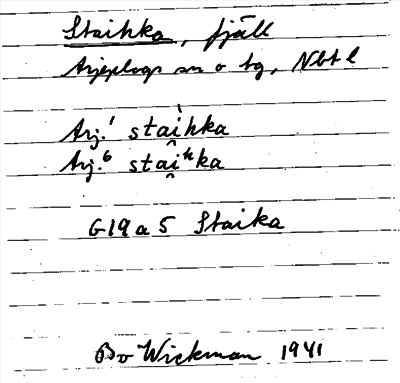 Staihka, fjäll
Arjeplogs sn o tg, Nbt l
Arj.¹ stai̯hka
Arj.⁶ stai̯ʰka
G19a5 Staika
Bo Wickman 1941